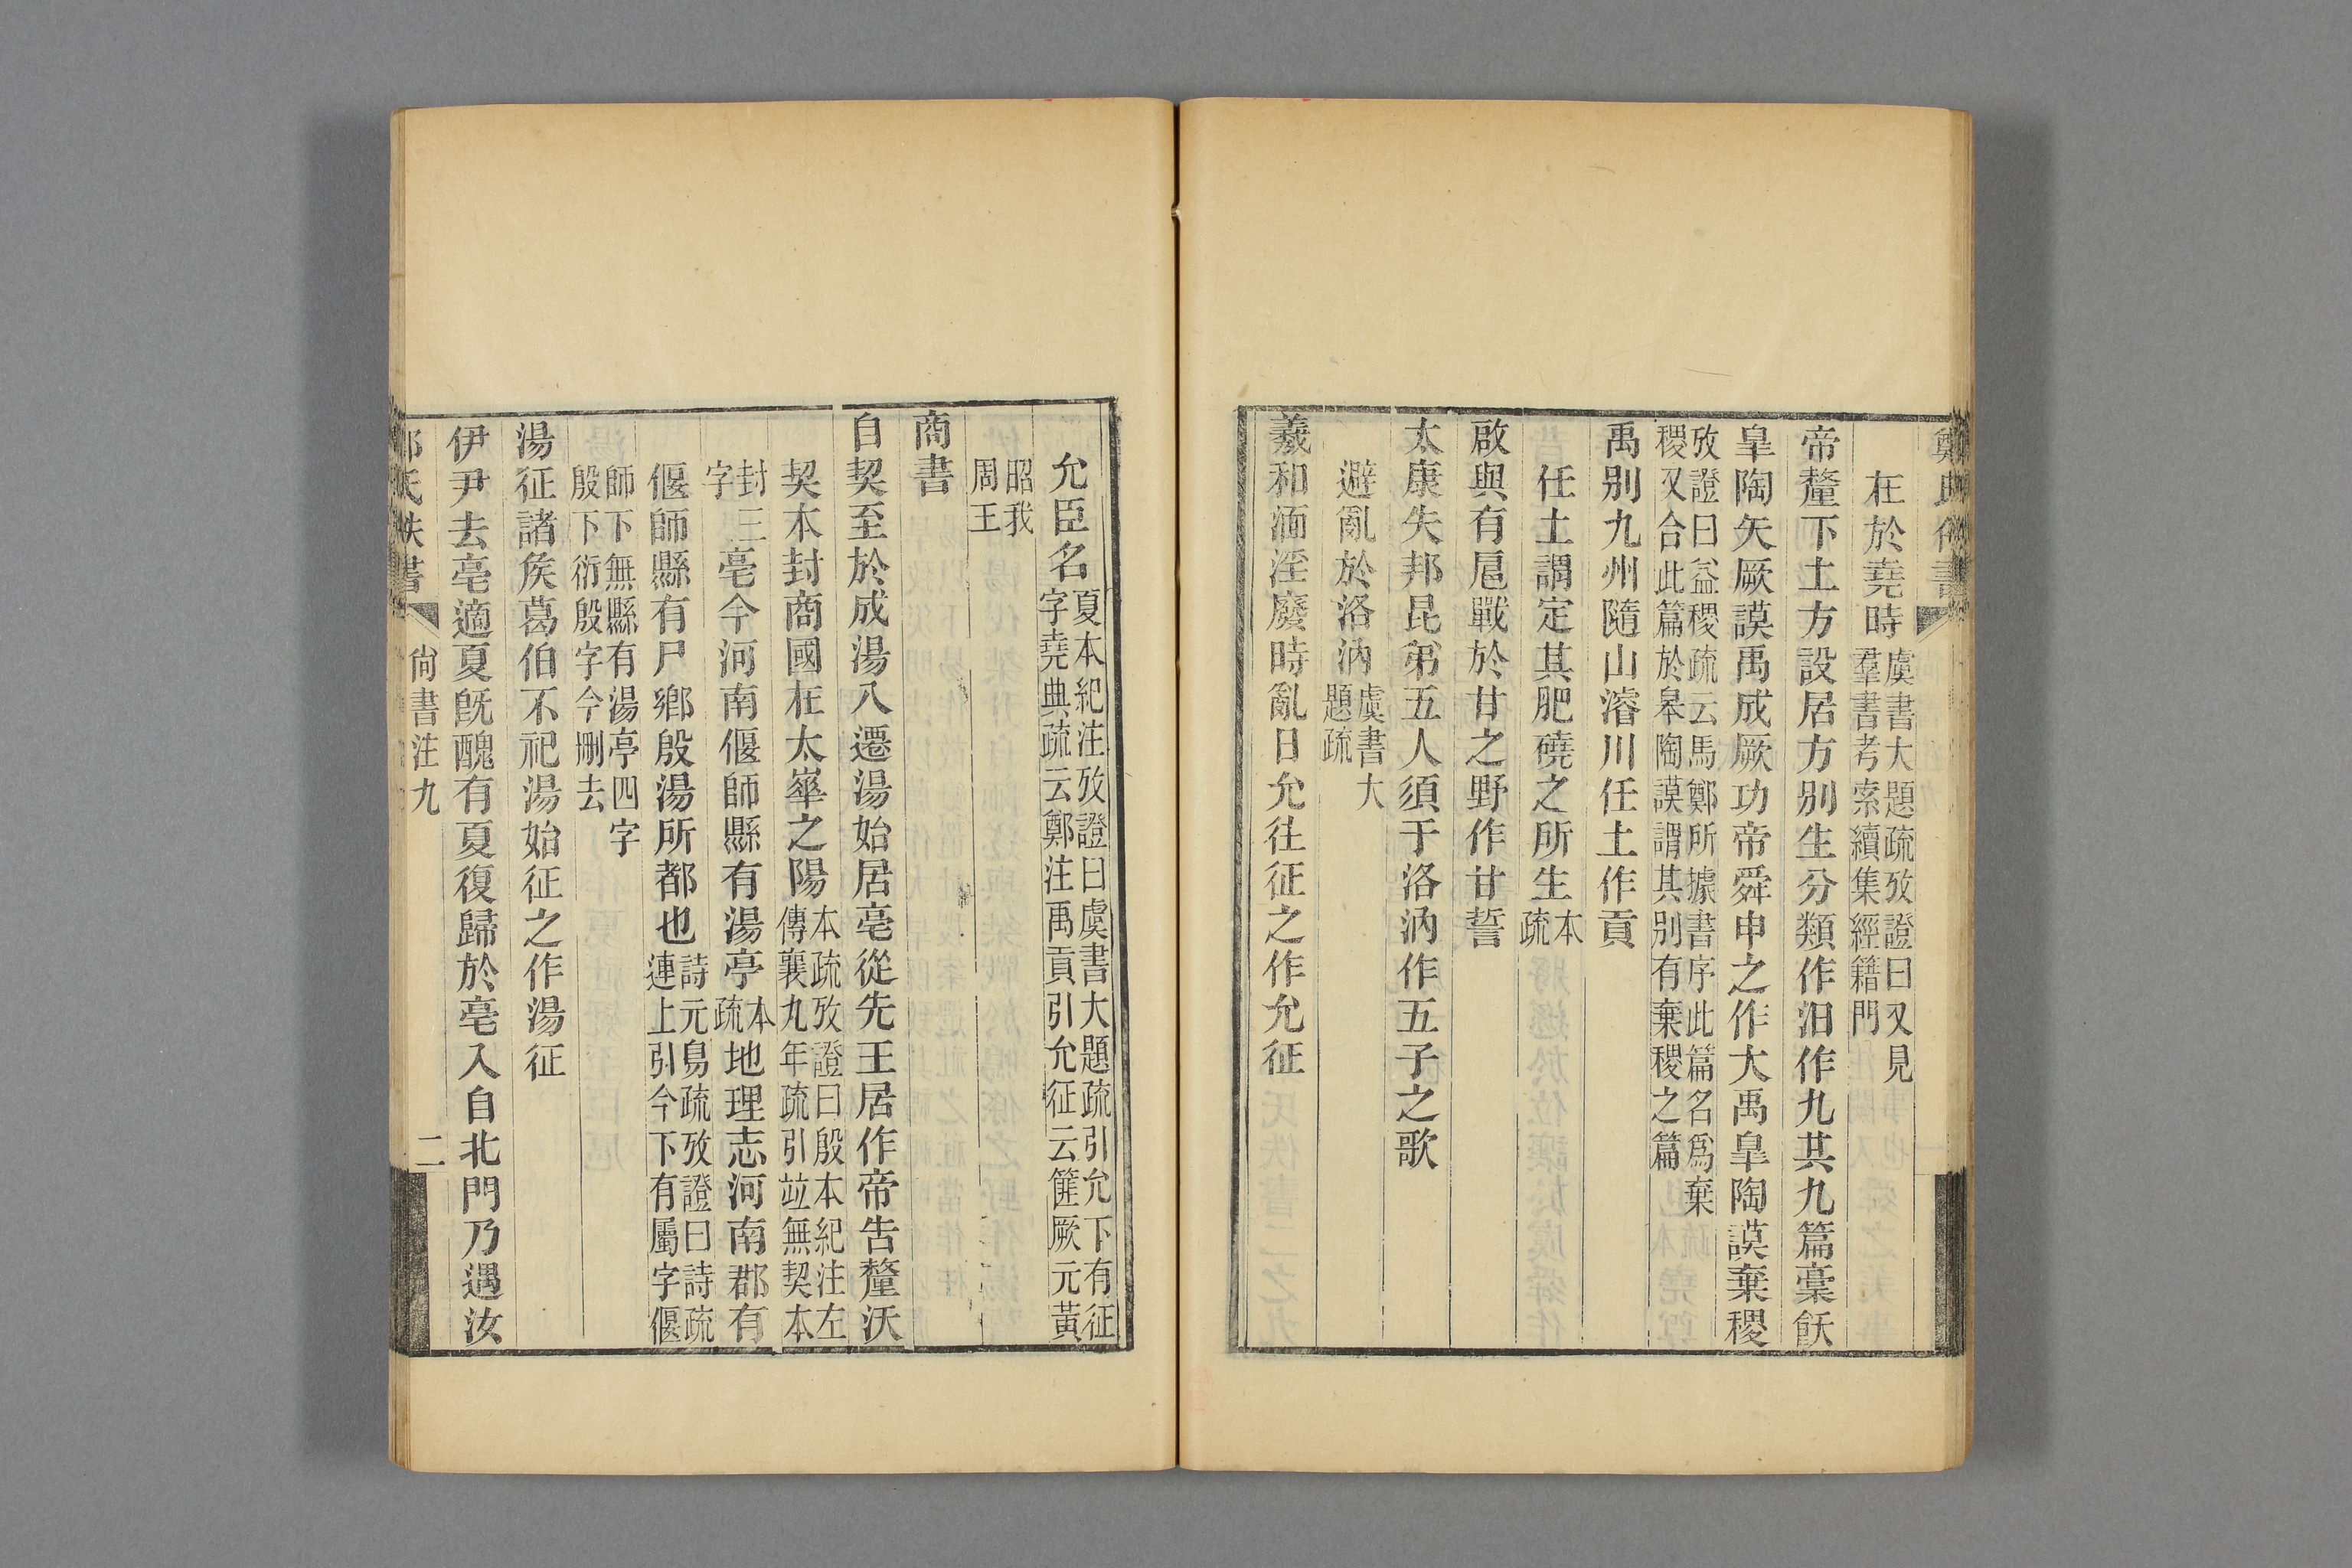 鄭氏佚書
在於堯時虞書大題疏攷證曰又見
羣書考索續集經籍門
帝釐下土方設居方別生分類作汩作九共九篇稾飫
皐陶矢厥謨禹成厥功帝舜申之作大禹皐陶謨棄稷
攷證曰益稷疏云馬鄭所據書序此篇名爲棄
稷又合此篇於皋陶謨謂其別有棄稷之篇
禹別九州隨山濬川任土作貢
任土謂定其肥磽之所生本
疏
啟與有扈戰於甘之野作甘誓
太康失邦昆弟五人須于洛汭作五子之歌
避亂於洛汭虞書大
題疏
羲和湎淫廢時亂日允往征之作允征
允臣名夏本紀注攷證曰虞書大題疏引允下有征
字堯典疏云鄭注禹貢引允征云篚厥元黃
昭我
周王
商書
自契至於成湯八遷湯始居亳從先王居作帝告釐沃
契本封商國在太崋之陽本疏攷證曰殷本紀注左
傳襄九年疏引竝無契本
封三
字
亳今河南偃師縣有湯亭本
疏
地理志河南郡有
偃師縣有尸鄉殷湯所都也詩元鳥疏攷證曰詩疏
連上引今下有屬字偃
師下無縣有湯亭四字
殷下衍殷字今刪去
湯征諸矦葛伯不祀湯始征之作湯征
伊尹去亳適夏旣醜有夏復歸於亳入自北門乃遇汝
氏佚書 尙書注九 二